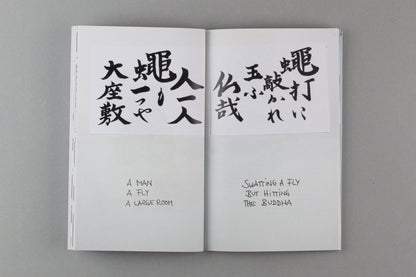 人一人
蠅も一つや
大座敷
A MAN
A FLY
A LARGE ROOM
蠅打に
敲かれ
玉ふ
仏哉
SWATTING A FLY
BUT HITTING
THE BUDDHA